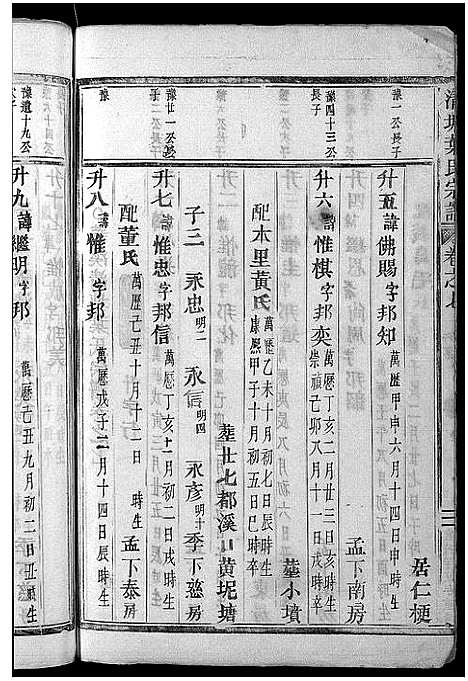 清塘葉氏宗譜 卷之七
豫一公長子
升五 諱佛賜字邦知 萬歷甲申六月十四日申時生 孟下南房 居仁梗
豫四十三公長子
升六 諱惟棋字邦奕 萬歷丁亥二月廿三日亥時生 崇禎己卯八月十一日戌時卒 葬小墳
配木里黃氏 萬歷乙未十月初七日辰時生 康熙甲子十月初五日巳時卒 葬廿七都溪口黃坭塘
子三 永忠明二 永信明四 永彥明十 季下慈房
豫廿一公長子
升七 諱惟忠字邦信 萬歷丁亥十一月初二日戌時生
配董氏 萬歷己丑十月十二日 時生 孟下泰房
豫
升八 諱惟 字邦 萬歷戊子二月十四日辰時生
豫遠十九公
升九 諱繼明字邦 萬歷己丑九月初二日丑時生